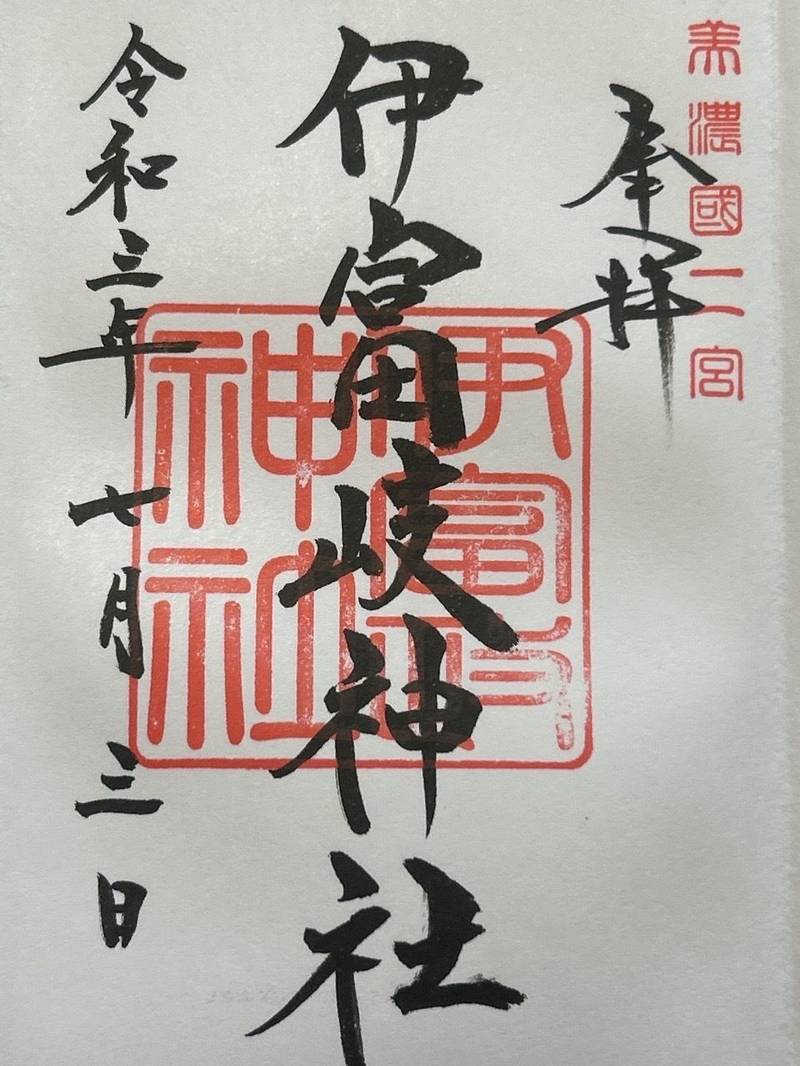 美濃國二宮
奉拝
伊富岐神社
伊富岐神社
令和三年七月三日